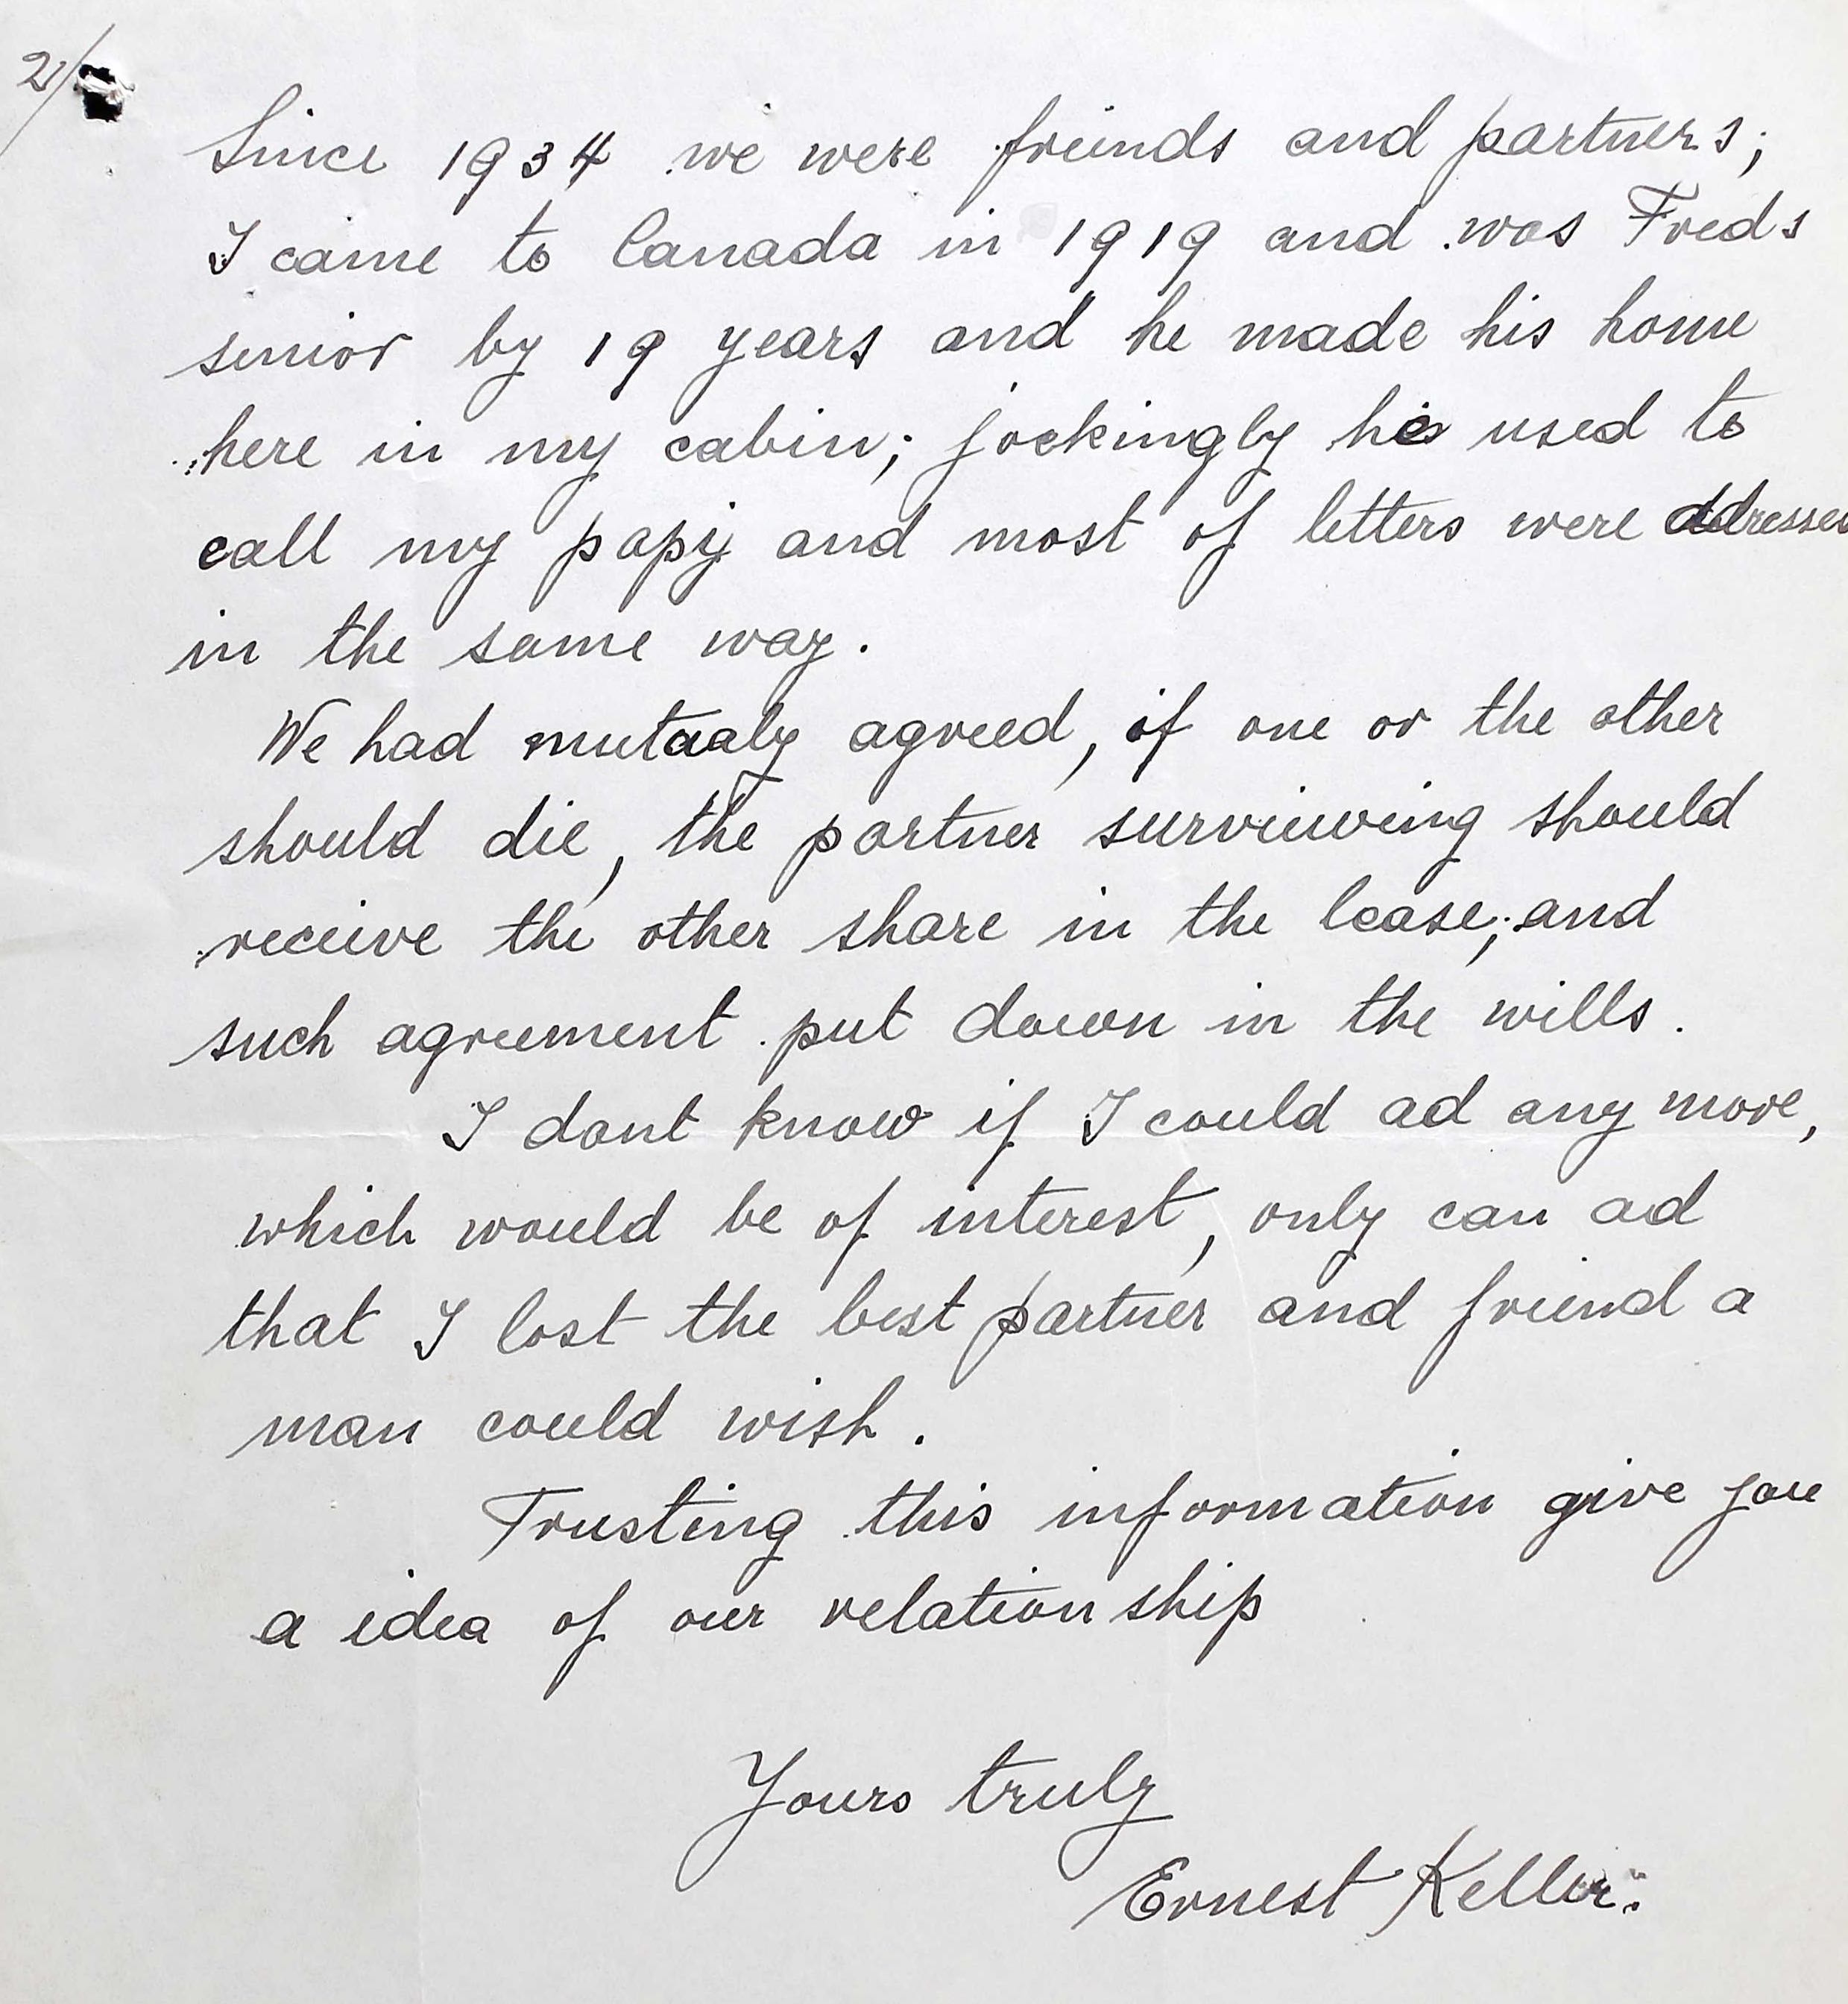 2/
Since 1934 we were freinds and partners;
I came to Canada in 1919 and was Freds
senior by 19 years and he made his home
here in my cabin; jockingly he used to
call my papy and most of letters were addressed
in the same way.
We had mutaaly agreed, if one or the other
should die, the partner surviuwing should
receive the other share in the lease; and
such agreement put down in the wills.
I dont know if I could ad any more,
which would be of interest, only can ad
that I lost the best partner and friend a
man could wish.
Trusting this information give you
a idea of our relationship
Yours truly
Ernest Keller.